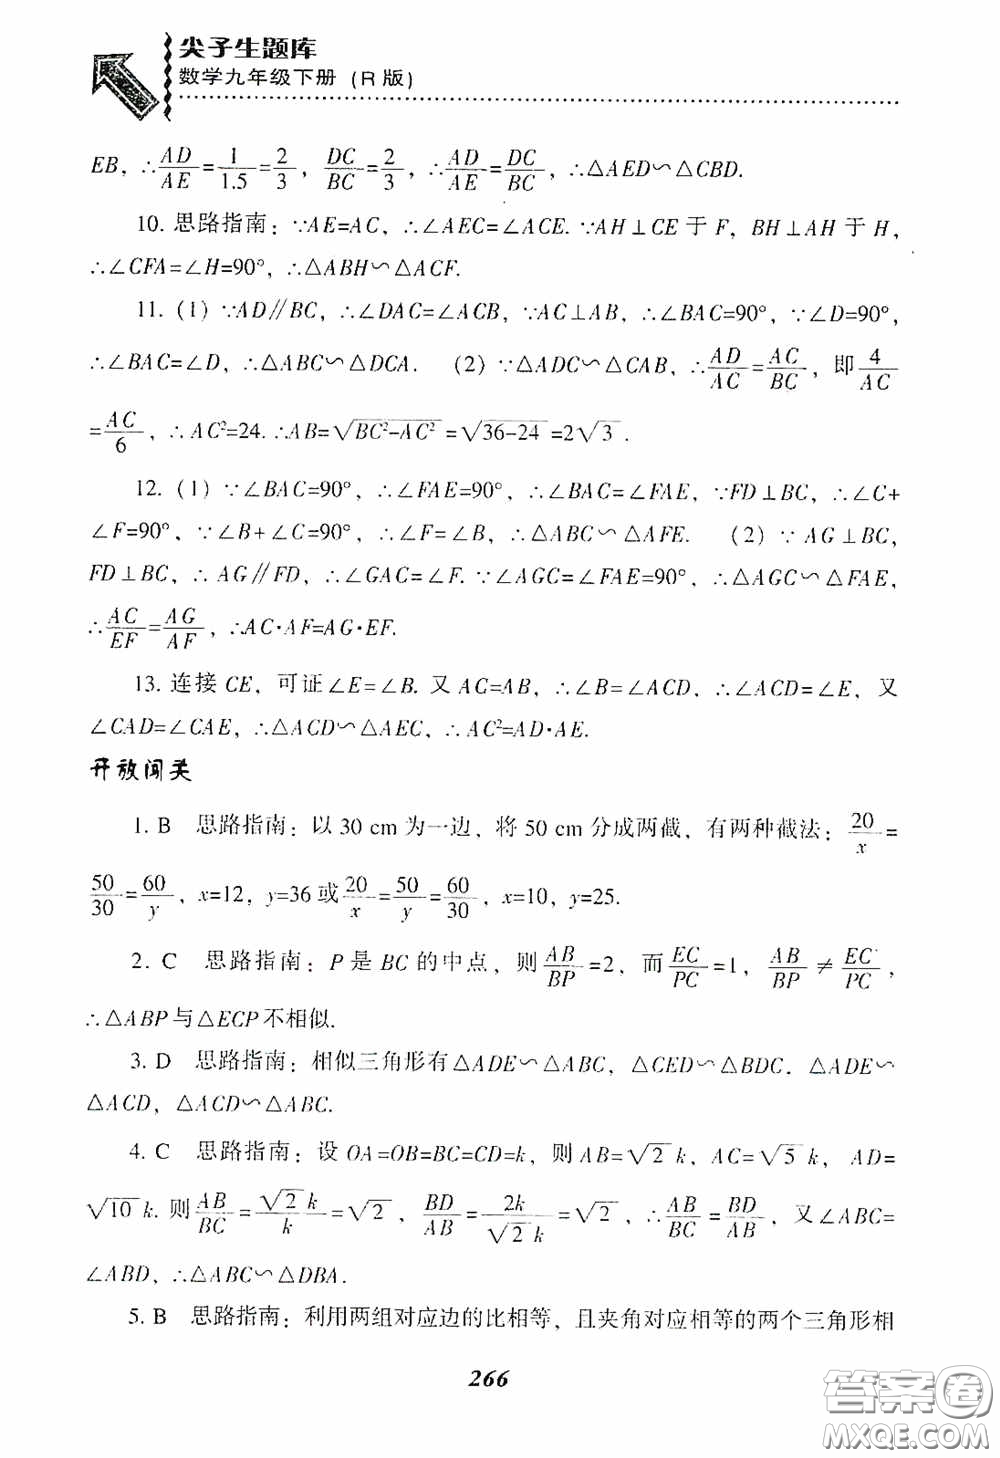 尖子生题库
数学九年级下册 (R版)
EB, ∴AD/AE=1/1.5=2/3, DC/BC=2/3, ∴AD/AE=DC/BC, ∴△AED∽△CBD.
10. 思路指南: ∵AE=AC, ∴∠AEC=∠ACE. ∵AH⊥CE于F, BH⊥AH于H,
∴∠CFA=∠H=90°, ∴△ABH∽△ACF.
11. (1) ∵AD∥BC, ∴∠DAC=∠ACB, ∵AC⊥AB, ∴∠BAC=90°, ∵∠D=90°,
∴∠BAC=∠D, ∴△ABC∽△DCA. (2) ∵△ADC∽△CAB, ∴AD/AC=AC/BC, 即4/AC
=AC/6, ∴AC²=24. ∴AB=√(BC²-AC²)=√(36-24)=2√3.
12. (1) ∵∠BAC=90°, ∴∠FAE=90°, ∴∠BAC=∠FAE, ∵FD⊥BC, ∴∠C+
∠F=90°, ∵∠B+∠C=90°, ∴∠F=∠B, ∴△ABC∽△AFE. (2) ∵AG⊥BC,
FD⊥BC, ∴AG∥FD, ∴∠GAC=∠F. ∵∠AGC=∠FAE=90°, ∴△AGC∽△FAE,
∴AC/EF=AG/AF, ∴AC·AF=AG·EF.
13. 连接CE, 可证∠E=∠B. 又AC=AB, ∴∠B=∠ACD, ∴∠ACD=∠E, 又
∠CAD=∠CAE, ∴△ACD∽△AEC, ∴AC²=AD·AE.
开放闯关
1. B 思路指南: 以30 cm为一边, 将50 cm分成两截, 有两种截法: 20/x=
50/30=60/y, x=12, y=36或20/x=50/y=60/30, x=10, y=25.
2. C 思路指南: P是BC的中点, 则AB/BP=2, 而EC/PC=1, AB/BP≠EC/PC,
∴△ABP与△ECP不相似.
3. D 思路指南: 相似三角形有△ADE∽△ABC, △CED∽△BDC. △ADE∽
△ACD, △ACD∽△ABC.
4. C 思路指南: 设OA=OB=BC=CD=k, 则AB=√2 k, AC=√5 k, AD=
√10 k. 则AB/BC=√2 k/k=√2, BD/AB=2k/√2 k=√2, ∴AB/BC=BD/AB, 又∠ABC=
∠ABD, ∴△ABC∽△DBA.
5. B 思路指南: 利用两组对应边的比相等, 且夹角对应相等的两个三角形相
266
答案卷
MXQE.COM